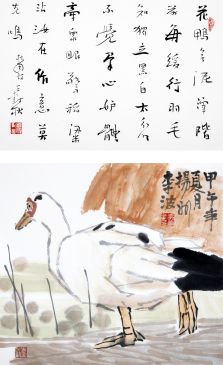 花鴨無泥滓階
前每緩行羽毛
知獨立黑白太分明
不覺羣心妒休
牽衆眼驚稻粱
沾汝在作意莫
先鳴
甲午年
夏月揚州
李波